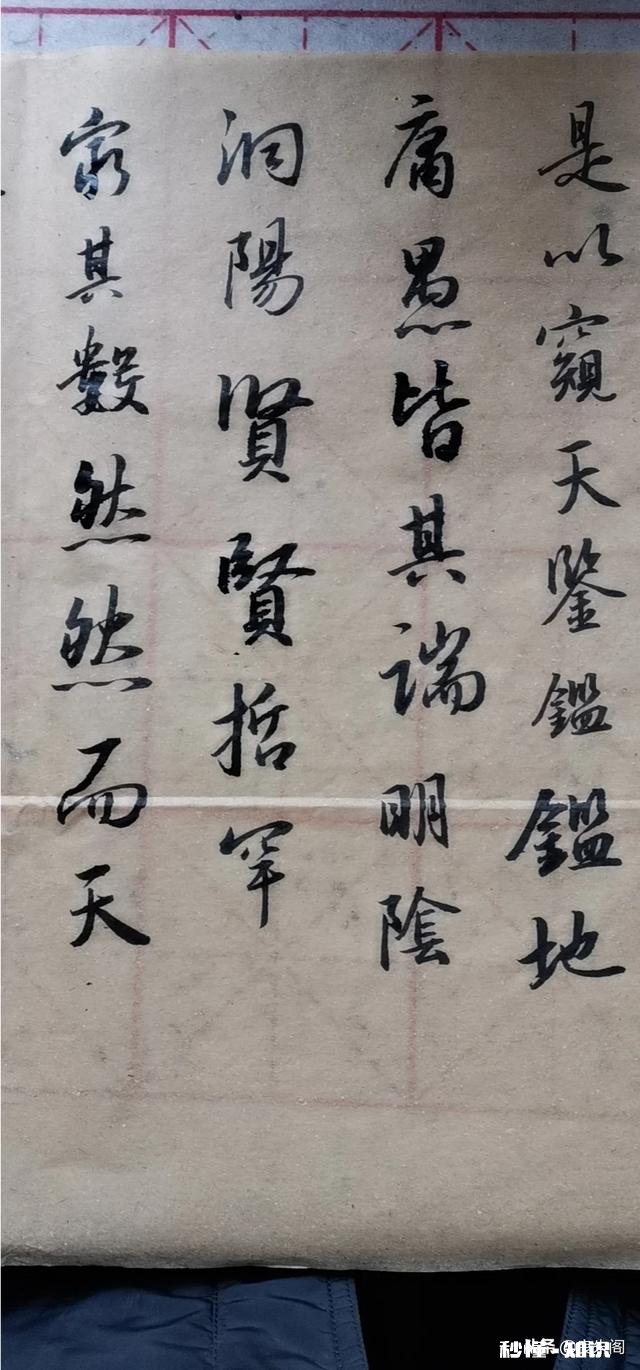 是以窺天鑒鑑鑑地
庸愚皆其端明陰
洞陽賢賢哲罕
窮其數然然而天
秒懂·知识